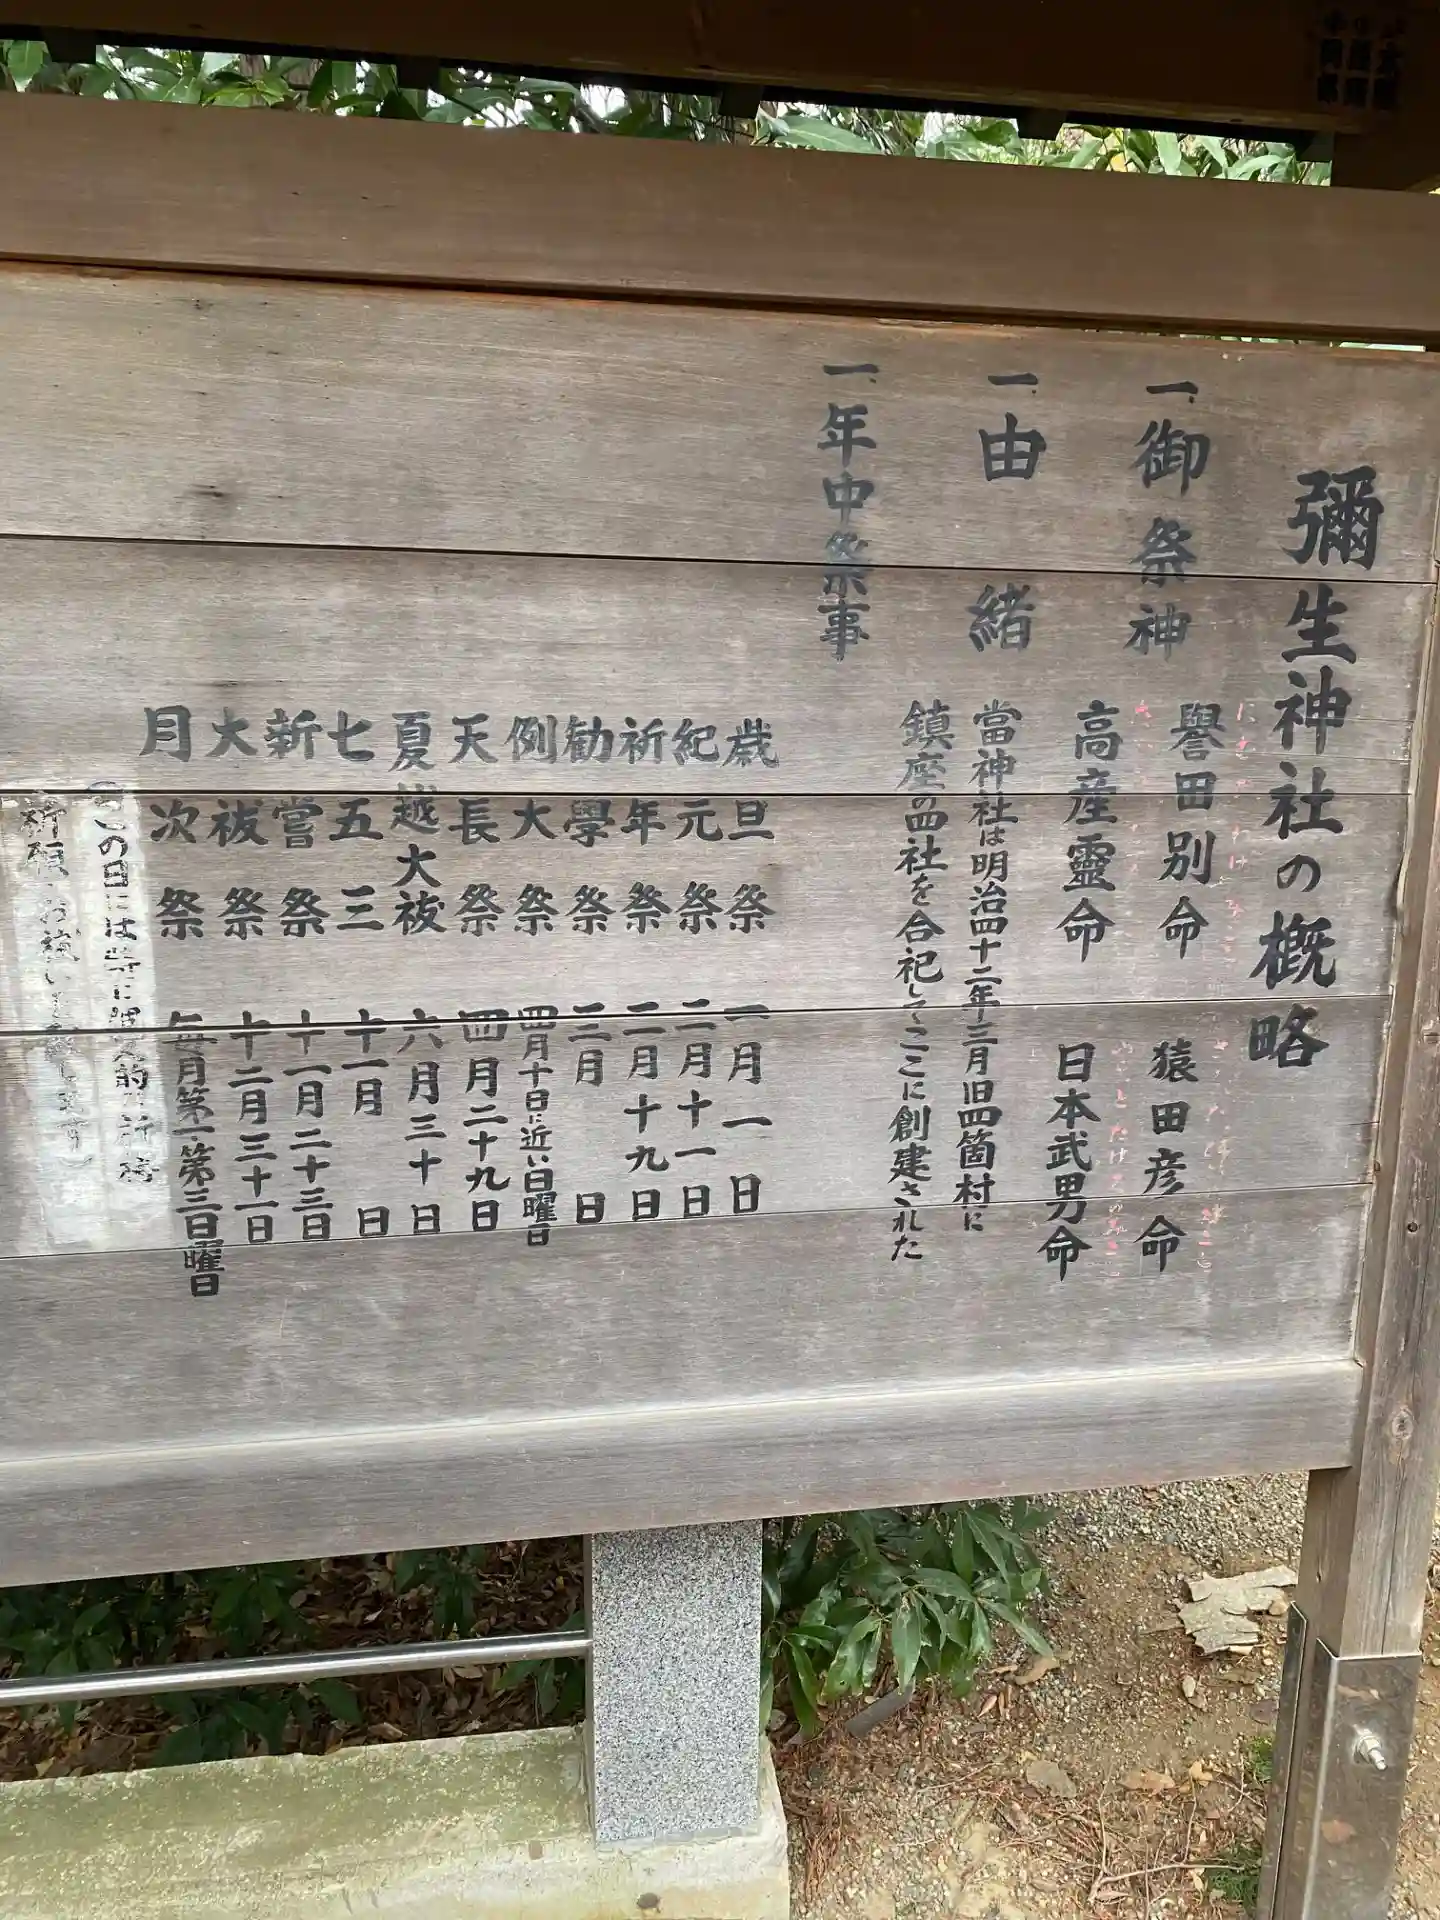 彌生神社の概略
一、御祭神
譽田別命 猿田彦命
高産靈命 日本武男命
一、由緒
當神社は明治四十二年三月旧四箇村に
鎮座の四社を合祀してここに創建された
一、年中祭事
歳旦祭 一月一日
紀元祭 二月十一日
祈年祭 二月十九日
勧學祭 三月 日
例大祭 四月十日に近い日曜日
天長祭 四月二十九日
夏越大祓 六月三十日
七五三 十一月 日
新嘗祭 十一月二十三日
大祓祭 十二月三十一日
月次祭 毎月第一、第三日曜日
(この日には